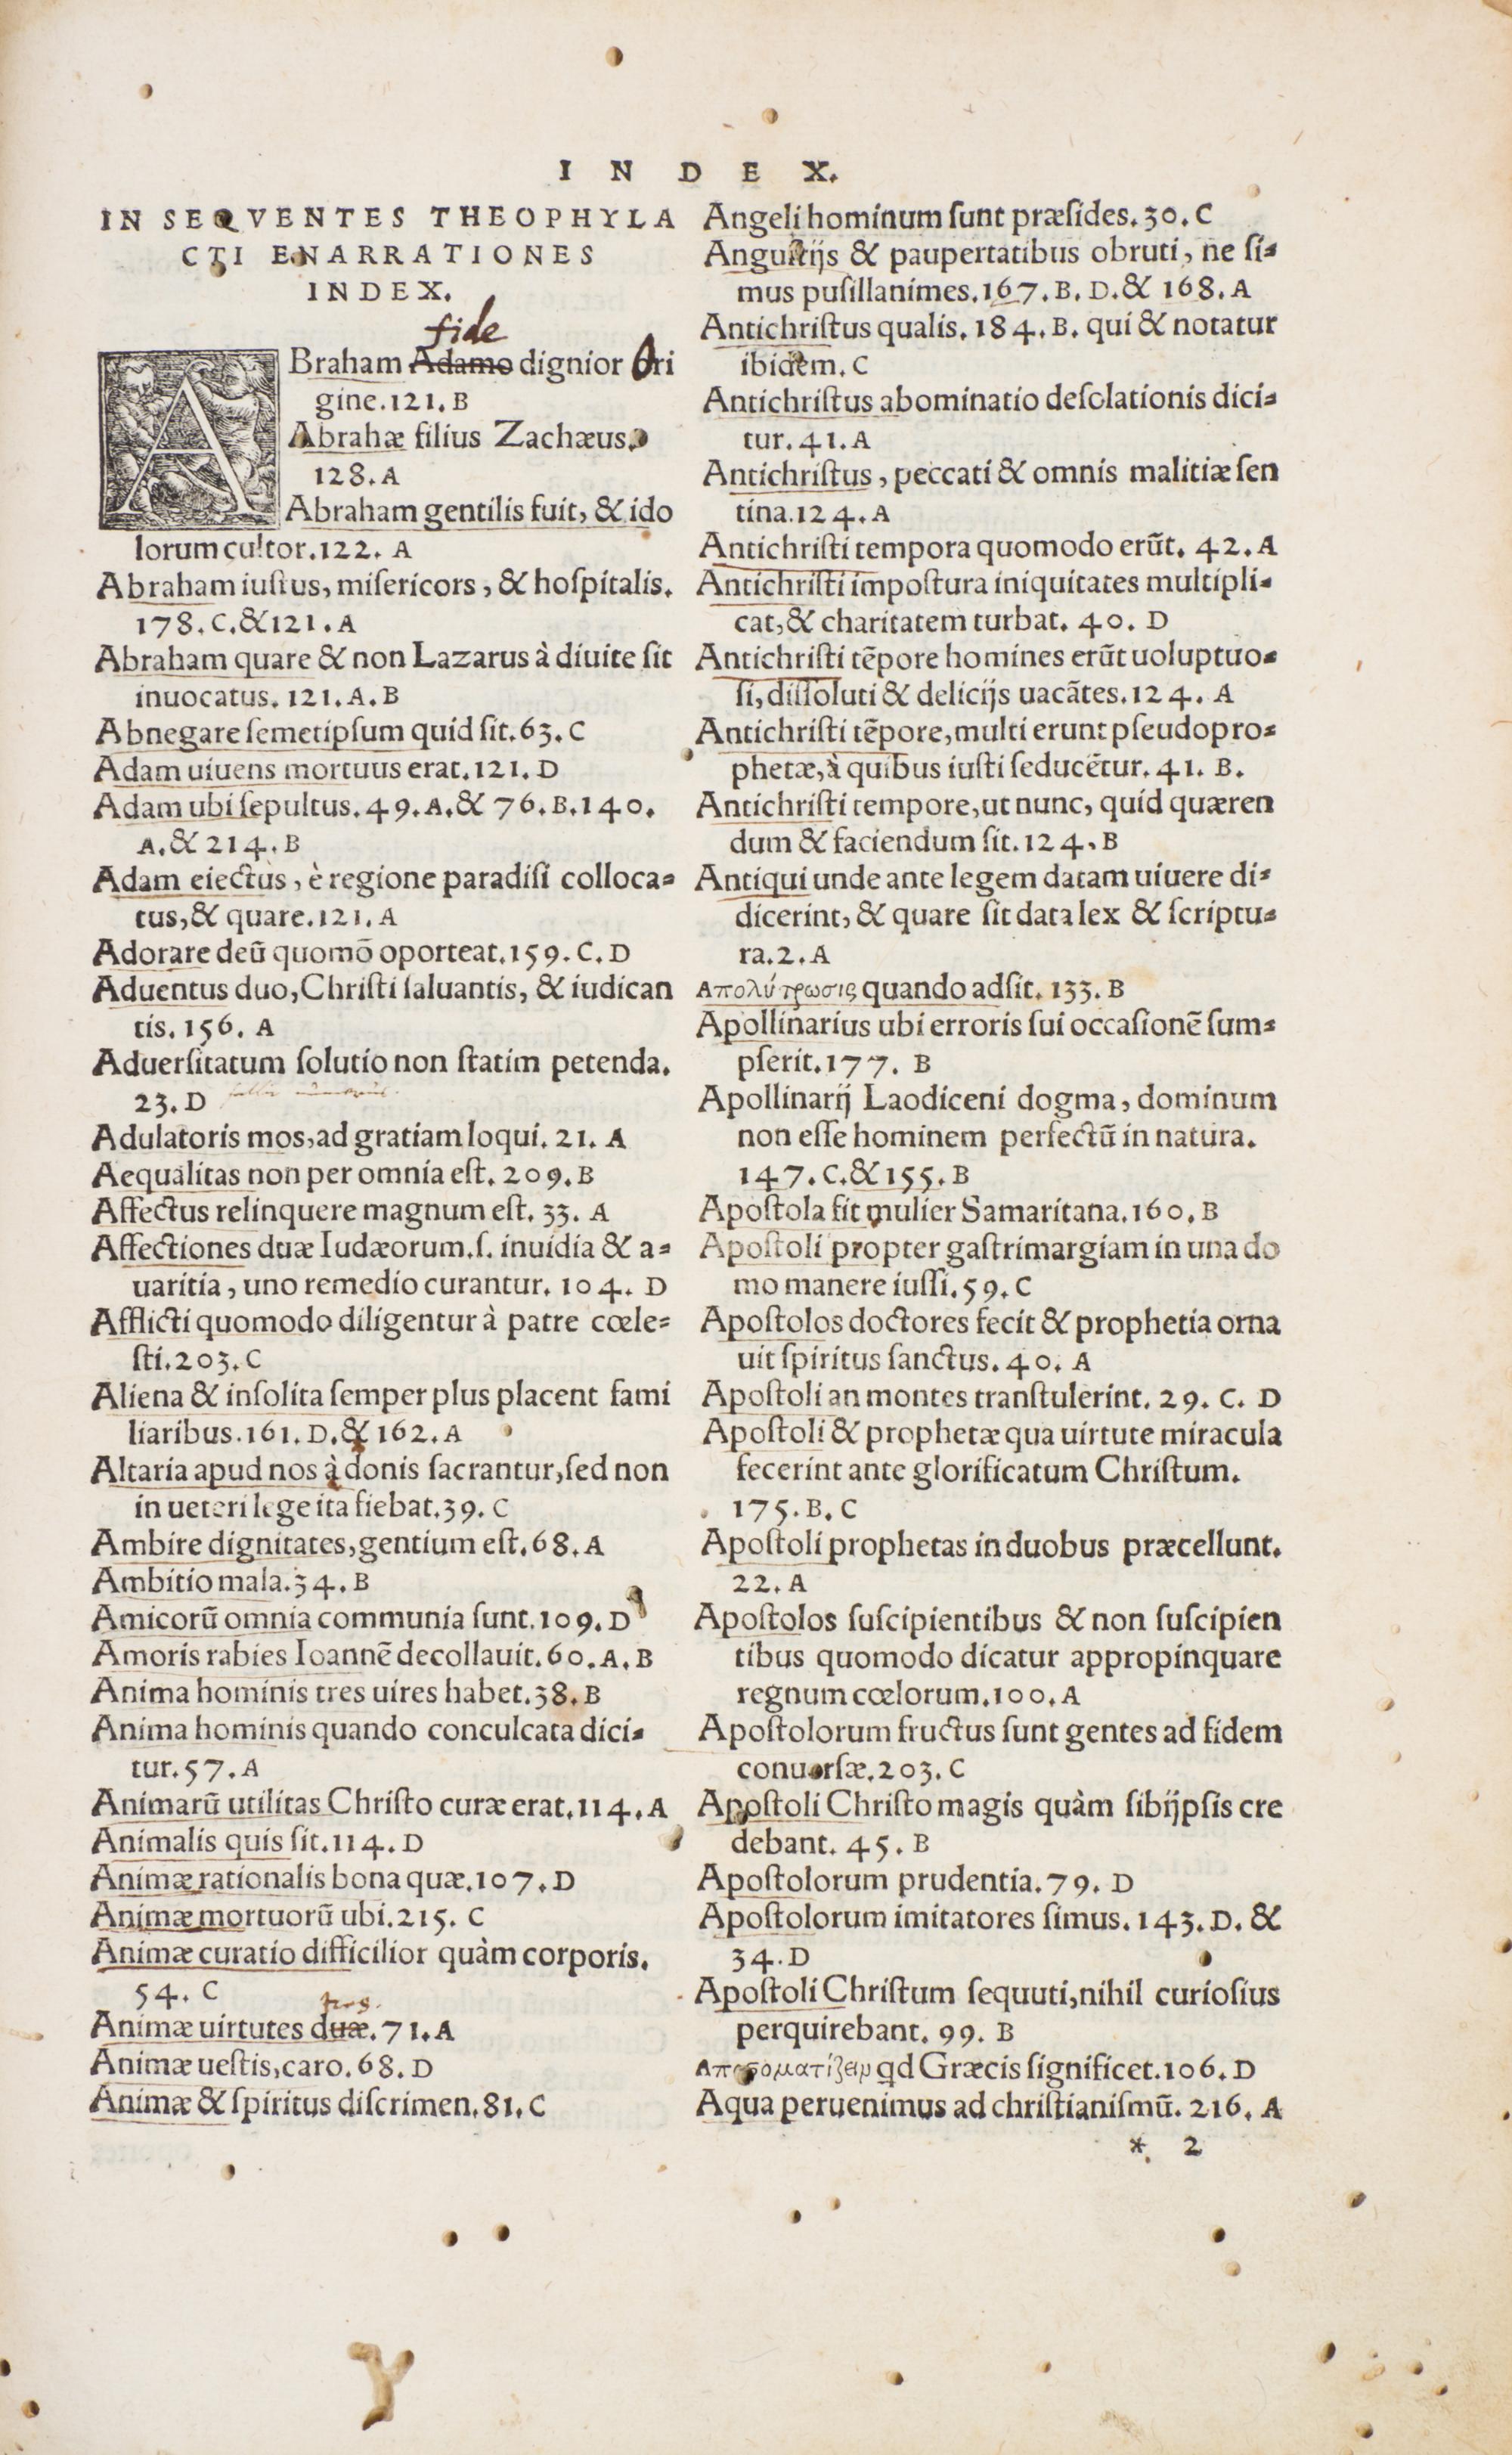 INDEX.
IN SEQVENTES THEOPHYLA
CTI ENARRATIONES
INDEX.
fide
ABraham Adamo dignior Ori
gine.121.B
Abrahæ filius Zachæus.
128.A
Abraham gentilis fuit, & ido
lorum cultor.122. A
Abraham iuſtus, miſericors, & hoſpitalis.
178.C.&121.A
Abraham quare & non Lazarus à diuite ſit
inuocatus. 121.A.B
Abnegare ſemetipſum quid ſit.63.C
Adam uiuens mortuus erat.121.D
Adam ubi ſepultus.49.A.& 76.B.140.
A.& 214.B
Adam eiectus, è regione paradiſi colloca-
tus,& quare.121.A
Adorare deū quomō oporteat.159.C.D
Aduentus duo, Chriſti ſaluantis, & iudican
tis. 156. A
Aduerſitatum ſolutio non ſtatim petenda.
23.D
Adulatoris mos, ad gratiam loqui. 21. A
Aequalitas non per omnia eſt. 209.B
Affectus relinquere magnum eſt. 33. A
Affectiones duæ Iudæorum.ſ. inuidia & a-
uaritia, uno remedio curantur. 104. D
Afflicti quomodo diligentur à patre cœle-
ſti.203.C
Aliena & inſolita ſemper plus placent fami
liaribus.161.D.& 162.A
Altaria apud nos à donis ſacrantur, ſed non
in ueteri lege ita fiebat.39.C
Ambire dignitates, gentium eſt.68.A
Ambitio mala.34.B
Amicorū omnia communia ſunt.109.D
Amoris rabies Ioannē decollauit.60.A.B
Anima hominis tres uires habet.38.B
Anima hominis quando conculcata dici-
tur.57.A
Animarū utilitas Chriſto curæ erat.114.A
Animalis quis ſit.114.D
Animæ rationalis bona quæ.107.D
Animæ mortuorū ubi.215. C
Animæ curatio difficilior quàm corporis.
54. C
Animæ uirtutes duæ.71.A
Animæ ueſtis, caro.68.D
Animæ & ſpiritus diſcrimen.81.C
Angeli hominum ſunt præſides.30.C
Anguſtijs & paupertatibus obruti, ne ſi-
mus puſillanimes.167.B.D.& 168.A
Antichriſtus qualis. 184.B. qui & notatur
ibidem.C
Antichriſtus abominatio deſolationis dici-
tur. 41.A
Antichriſtus, peccati & omnis malitiæ ſen
tina.124.A
Antichriſti tempora quomodo erūt. 42.A
Antichriſti impoſtura iniquitates multipli-
cat, & charitatem turbat. 40. D
Antichriſti tēpore homines erūt uoluptuo-
ſi, diſſoluti & delicijs uacātes.124. A
Antichriſti tēpore, multi erunt pſeudopro-
phetæ, à quibus iuſti ſeducētur. 41. B.
Antichriſti tempore, ut nunc, quid quæren
dum & faciendum ſit.124.B
Antiqui unde ante legem datam uiuere di-
dicerint, & quare ſit data lex & ſcriptu-
ra.2.A
Aπολύτρωσις quando adſit. 133. B
Apollinarius ubi erroris ſui occaſionē ſum-
pſerit.177. B
Apollinarij Laodiceni dogma, dominum
non eſſe hominem perfectū in natura.
147.C.&155.B
Apoſtola fit mulier Samaritana.160.B
Apoſtoli propter gaſtrimargiam in una do
mo manere iuſſi.59.C
Apoſtolos doctores fecit & prophetia orna
uit ſpiritus ſanctus. 40. A
Apoſtoli an montes tranſtulerint. 29. C. D
Apoſtoli & prophetæ qua uirtute miracula
fecerint ante glorificatum Chriſtum.
175.B.C
Apoſtoli prophetas in duobus præcellunt.
22.A
Apoſtolos ſuſcipientibus & non ſuſcipien
tibus quomodo dicatur appropinquare
regnum cœlorum.100.A
Apoſtolorum fructus ſunt gentes ad fidem
conuerſæ.203.C
Apoſtoli Chriſto magis quàm ſibijpſis cre
debant. 45. B
Apoſtolorum prudentia.79. D
Apoſtolorum imitatores ſimus. 143.D. &
34.D
Apoſtoli Chriſtum ſequuti, nihil curioſius
perquirebant. 99. B
qd Græcis ſignificet.106.D
Aqua peruenimus ad chriſtianiſmū. 216. A
* 2